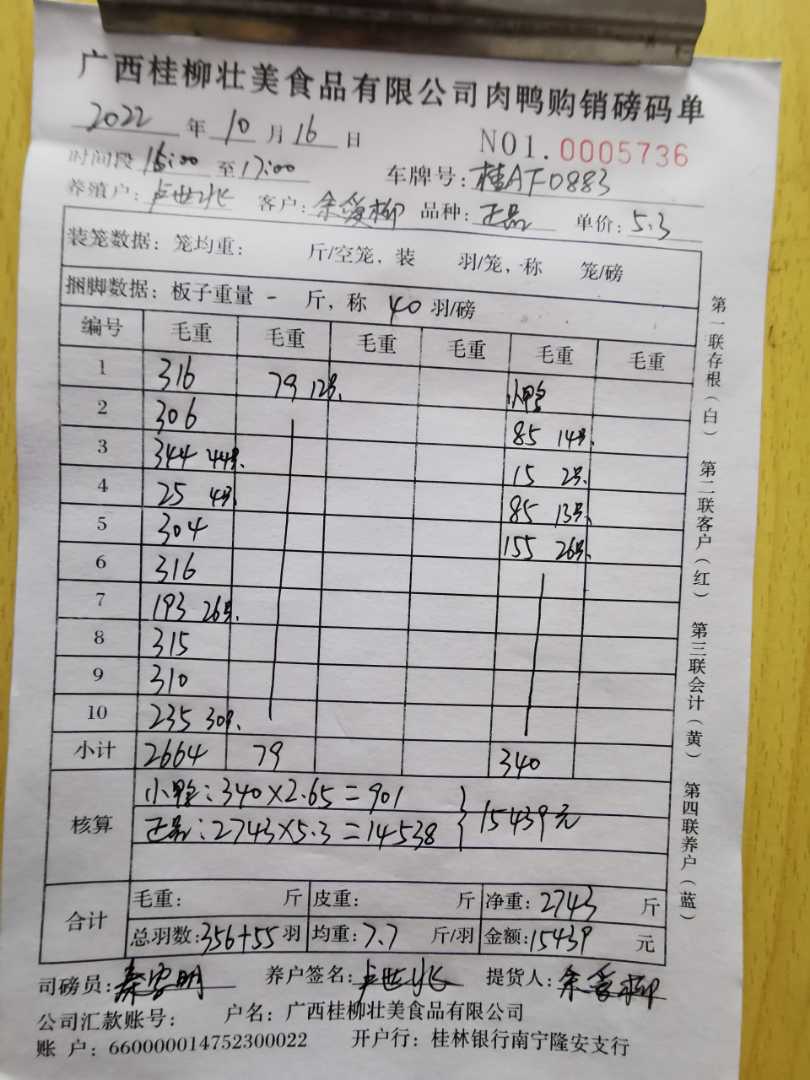 广西桂柳壮美食品有限公司肉鸭购销磅码单
2022 年 10 月 16 日 NO1.0005736
时间段 15:00 至 17:00 车牌号：桂AF0883
养殖户：卢世兆 客户：余爱柳 品种：正品 单价：5.3
装笼数据：笼均重： 斤/空笼，装 羽/笼，称 笼/磅
捆脚数据：板子重量 - 斤，称 40 羽/磅
编号 毛重 毛重 毛重 毛重 毛重 毛重
1 316 79 12只. 小鸭
2 306 85 14只.
3 344 44只. 15 2只.
4 25 4只. 85 13只.
5 304 155 26只.
6 316
7 193 26只.
8 315
9 310
10 235 30只.
小计 2664 79 340
核算 小鸭：340×2.65=901
正品：2743×5.3=14538 } 15439元
合计 毛重： 斤 皮重： 斤 净重：2743 斤
总羽数：356+55 羽 均重：7.7 斤/羽 金额：15439 元
司磅员： 养户签名：卢世兆 提货人：余爱柳
公司汇款账号： 户名：广西桂柳壮美食品有限公司
账 户：660000014752300022 开户行：桂林银行南宁隆安支行
第一联存根（白） 第二联客户（红） 第三联会计（黄） 第四联养户（蓝）